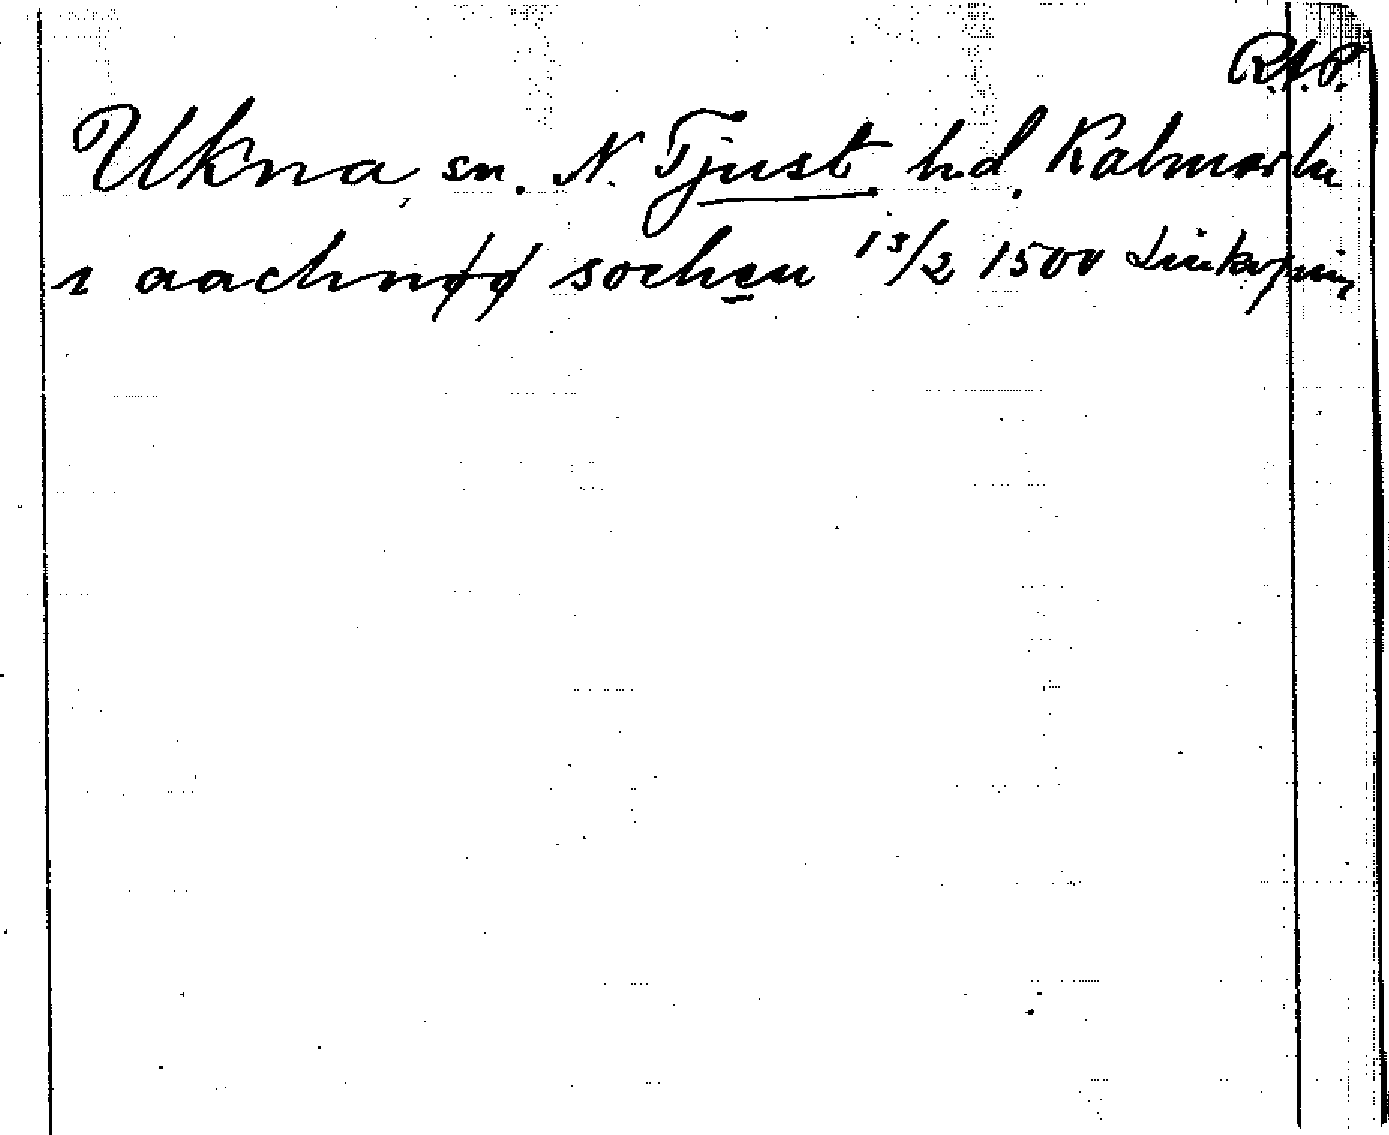 R.A.P.
Ukna, sn. N. Tjust hd, Kalmar ln
i aachnøø sochen 13/2 1500 Linköping